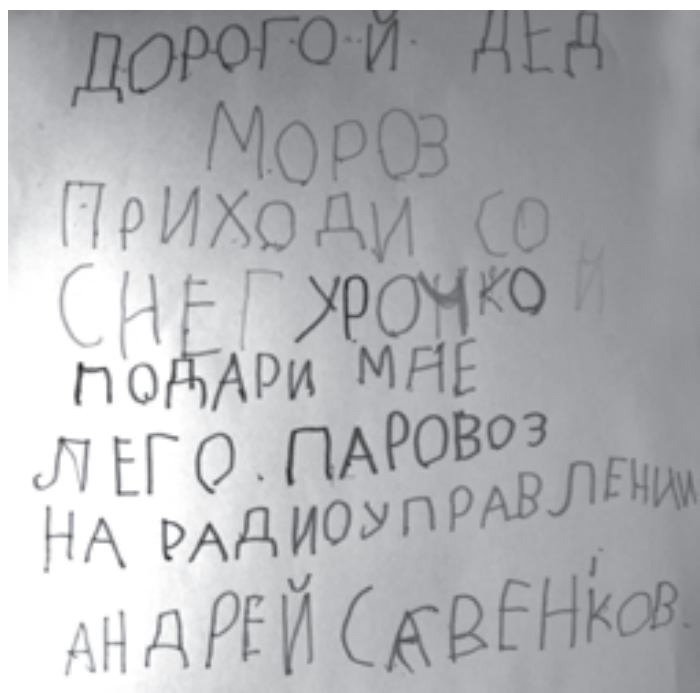 ДОРОГОЙ ДЕД
МОРОЗ
ПРИХОДИ СО
СНЕГУРОЧКОЙ
ПОДАРИ МНЕ
ЛЕГО. ПАРОВОЗ
НА РАДИОУПРАВЛЕНИИ
АНДРЕЙ САВЕНКОВ.